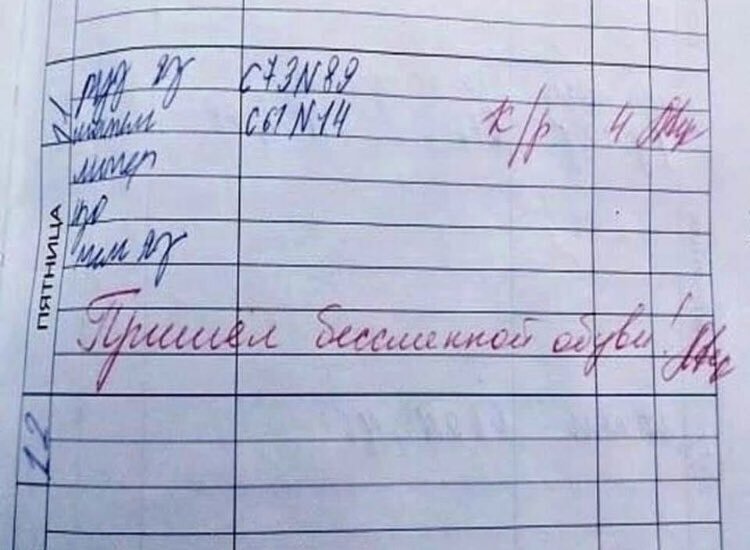 ПЯТНИЦА
11
рус яз с 73 N 89
матем с 61 N 14 к/р 4
литер
изо
нем яз
Пришёл бессменной обуви!
12